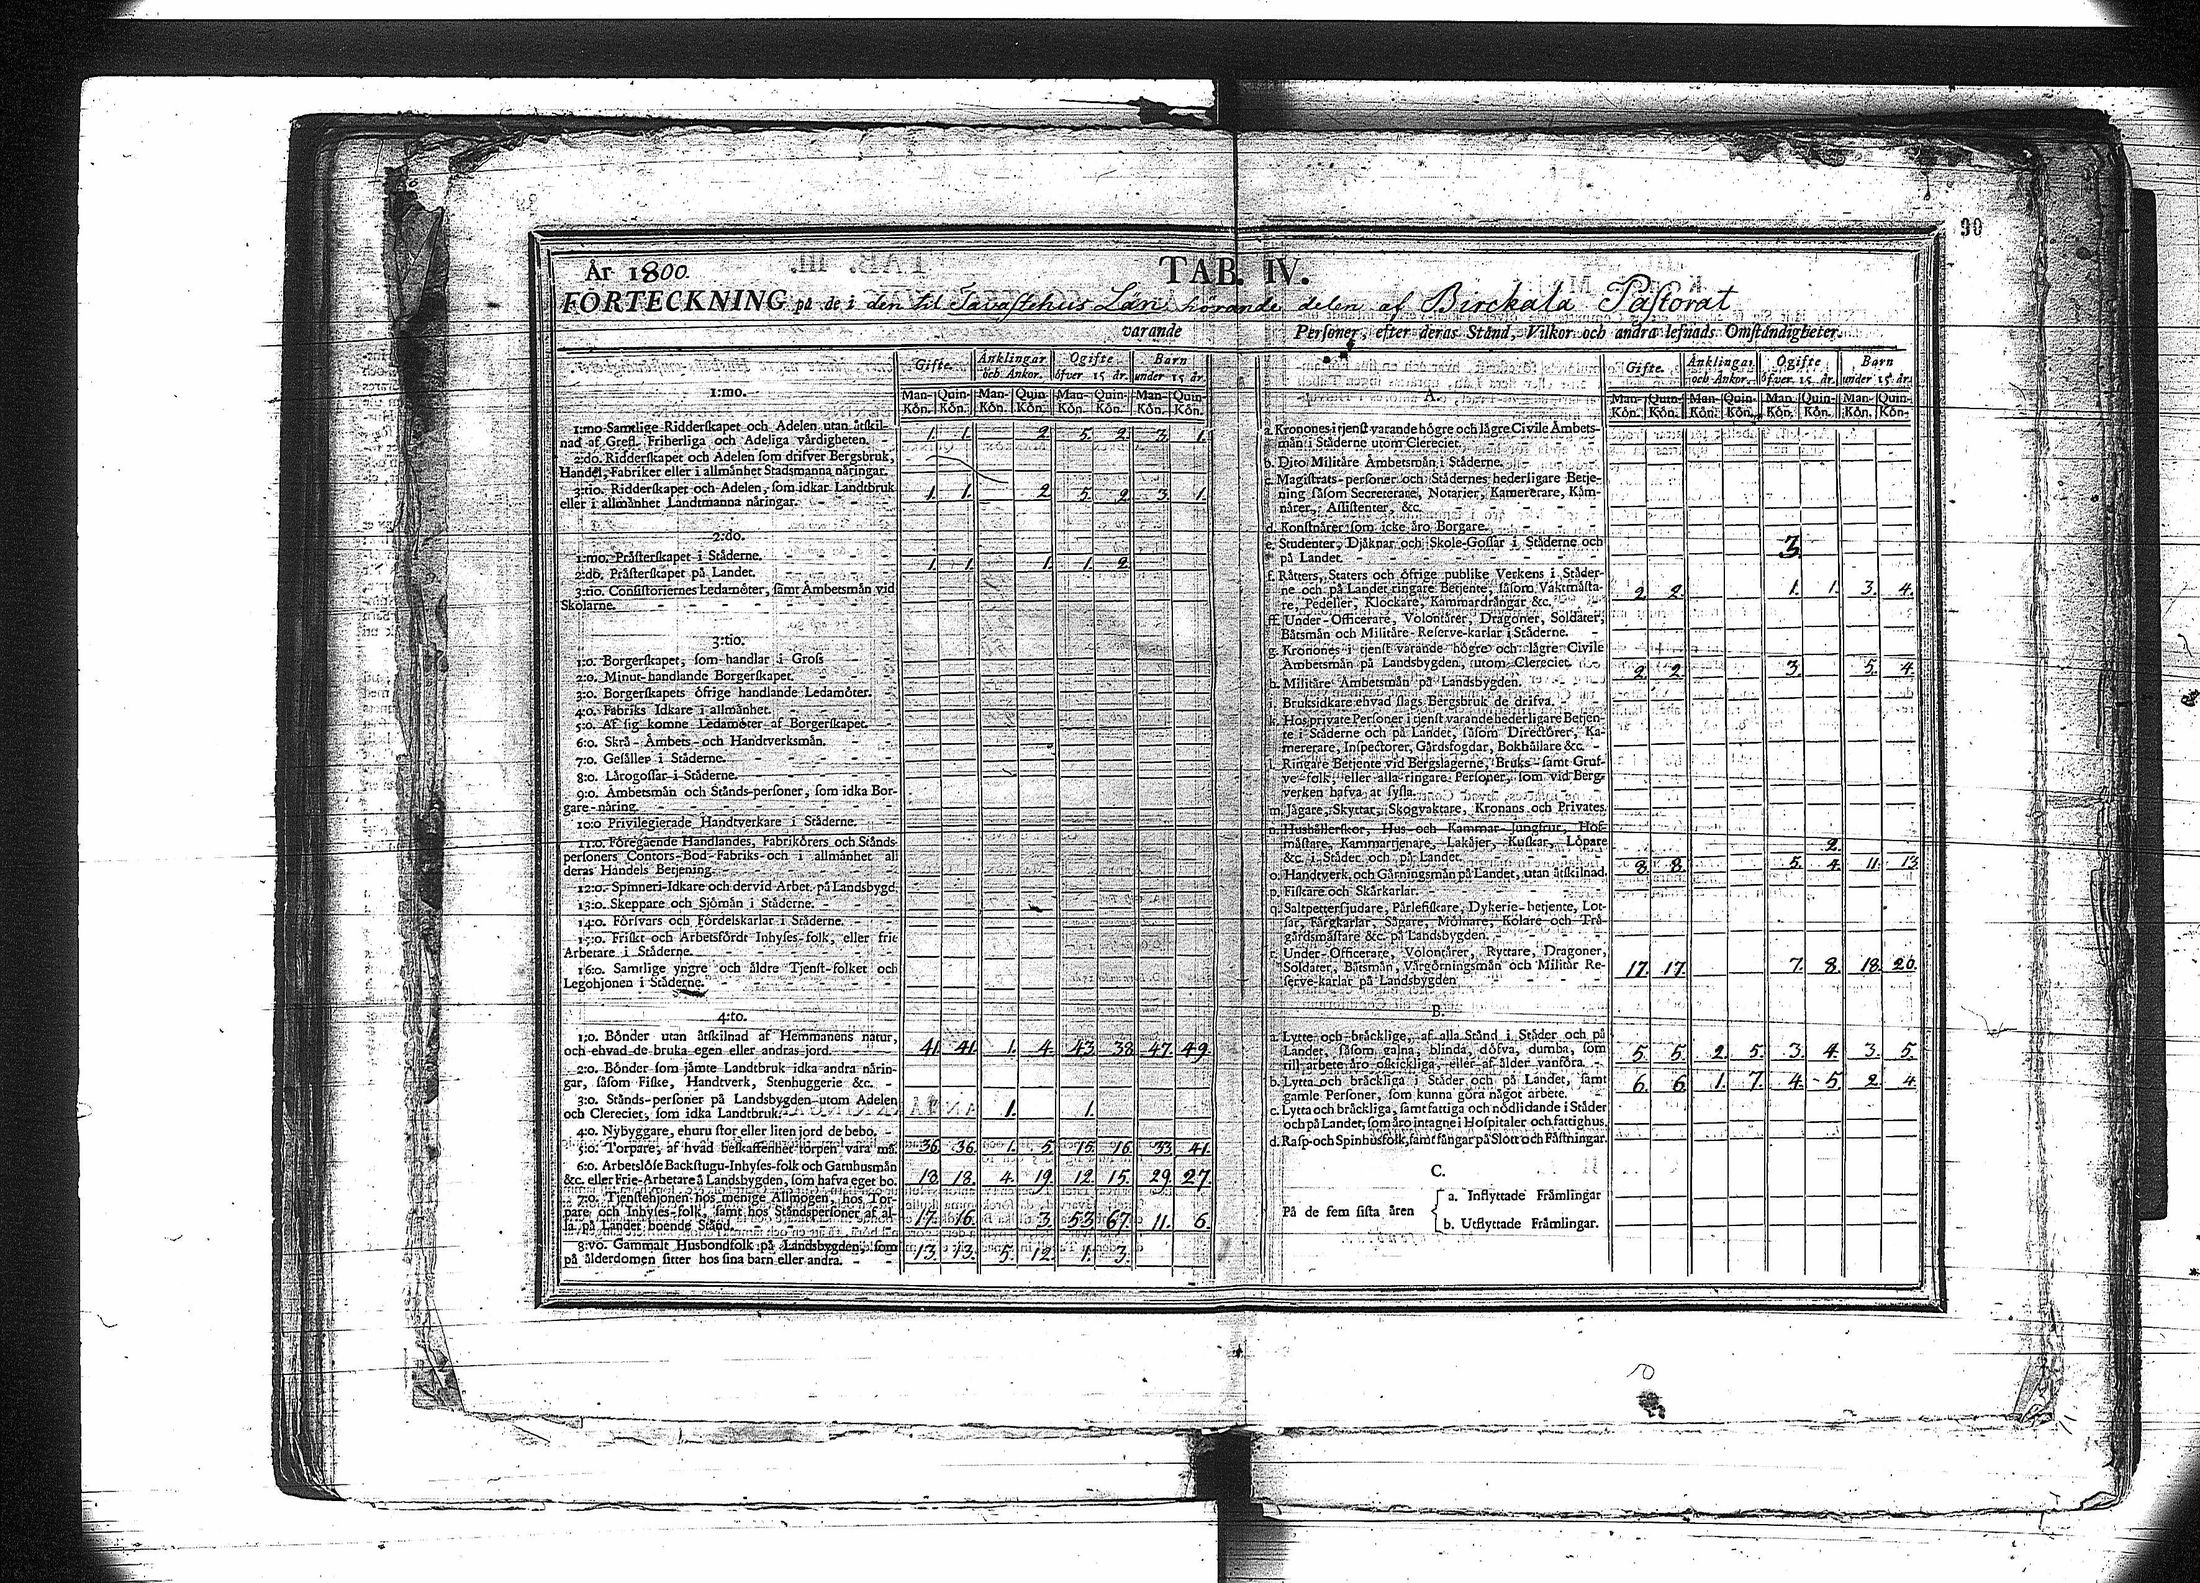 90
År 1800.
TAB. IV.
FÖRTECKNING på de i den til Tavastehus Län hörande delen af Birckala Pastorat
varande Personer, efter deras Stånd, Vilkor och andra lefnads Omständigheter.
Gifte. Änklingar och Änkor. Ogifte öfver 15 år. Barn under 15 år.
Man-Kön. Quin-Kön. Man-Kön. Quin-Kön. Man-Kön. Quin-Kön. Man-Kön. Quin-Kön.
1:mo.
1:mo Samtlige Ridderskapet och Adelen utan åtskil-
nad af Grefl. Friherliga och Adeliga värdigheten. 1. 1. 2. 5. 2. 3. 1.
2:do. Ridderskapet och Adelen som drifver Bergsbruk,
Handel, Fabriker eller i allmänhet Stadsmanna näringar.
3:tio. Ridderskapet och Adelen, som idkar Landtbruk
eller i allmänhet Landtmanna näringar. 1. 1. 2. 5. 2. 3. 1.
2:do.
1:mo. Prästerskapet i Städerne.
2:do. Prästerskapet på Landet. 1. 1. 1. 1. 2.
3:tio. Consistoriernes Ledamöter, samt Ämbetsmän vid
Skolarne.
3:tio.
1:o. Borgerskapet, som handlar i Gross
2:o. Minut-handlande Borgerskapet.
3:o. Borgerskapets öfrige handlande Ledamöter.
4:o. Fabriks Idkare i allmänhet.
5:o. Af sig komne Ledamöter af Borgerskapet.
6:o. Skrå-Ämbets-och Handtverksmän.
7:o. Gesäller i Städerne.
8:o. Lärogossar i Städerne.
9:o. Ämbetsmän och Stånds-personer, som idka Bor-
gare-näring.
10:o Privilegierade Handtverkare i Städerne.
11:o. Föregående Handlandes, Fabrikörers och Stånds-
personers Contors-Bod-Fabriks-och i allmänhet all
deras Handels Betjening.
12:o. Spinneri-Idkare och dervid Arbet. på Landsbygd.
13:o. Skeppare och Sjömän i Städerne.
14:o. Försvars och Fördelskarlar i Städerne.
15:o. Friskt och Arbetsfördt Inhyses-folk, eller frie
Arbetare i Städerne.
16:o. Samtlige yngre och äldre Tjenst-folket och
Legohjonen i Städerne.
4:to.
1:o. Bönder utan åtskilnad af Hemmanens natur,
och ehvad de bruka egen eller andras jord. 41. 41. 1. 4. 43. 38 47. 49
2:o. Bönder som jämte Landtbruk idka andra närin-
gar, såsom Fiske, Handtverk, Stenhuggerie &c.
3:o. Stånds-personer på Landsbygden utom Adelen
och Clereciet, som idka Landtbruk. 1. 1.
4:o. Nybyggare, ehuru stor eller liten jord de bebo.
5:o. Torpare, af hvad beskaffenhet torpen vara må. 36 36. 1. 5. 15. 16. 33. 41.
6:o. Arbetslöse Backstugu-Inhyses-folk och Gatuhusmän
&c. eller Frie-Arbetare å Landsbygden, som hafva eget bo. 18. 18. 4. 19. 12. 15. 29. 27.
7:o. Tjenstehjonen hos menige Allmogen, hos Tor-
pare och Inhyses-folk, samt hos Ståndspersoner af al-
la på Landet boende Stånd. 17. 16. 3. 53 67. 11. 6.
8:vo. Gammalt Husbondfolk på Landsbygden, som
på ålderdomen sitter hos sina barn eller andra. 13. 13. 5. 12. 1. 3.
Gifte. Änklingar och Änkor. Ogifte öfver 15 år. Barn under 15 år.
Man-Kön. Quin-Kön. Man-Kön. Quin-Kön. Man-Kön. Quin-Kön. Man-Kön. Quin-Kön.
A.
a. Kronones i tjenst varande högre och lägre Civile Ämbets-
män i Städerne utom Clereciet.
b. Dito Militäre Ämbetsmän i Städerne.
c. Magistrats-personer och Städernes hederligare Betje-
ning såsom Secreterarer, Notarier, Kamererare, Käm-
närer, Assistenter, &c.
d. Konstnärer som icke äro Borgare.
e. Studenter, Djäknar och Skole-Gossar i Städerne och
på Landet. 3.
f. Rätters, Staters och öfrige publike Verkens i Städer-
ne och på Landet ringare Betjente, såsom Vaktmästa-
re, Pedeller, Klockare, Kammardrängar &c. 2. 2. 1. 1. 3. 4.
ff. Under-Officerare, Volontärer, Dragoner, Soldater,
Båtsmän och Militäre-Reserve-karlar i Städerne.
g. Kronones i tjenst varande högre och lägre Civile
Ämbetsmän på Landsbygden, utom Clereciet. 2. 2. 3. 5. 4.
h. Militäre Ämbetsmän på Landsbygden.
i. Bruksidkare ehvad slags Bergsbruk de drifva.
k. Hos private Personer i tjenst varande hederligare Betjen-
te i Städerne och på Landet, såsom Directörer, Ka-
mererare, Inspectorer, Gårdsfogdar, Bokhållare &c.
l. Ringare Betjente vid Bergslagerne, Bruks-samt Gruf-
ve-folk, eller alla ringare Personer, som vid Berg-
verken hafva at syssla.
m. Jägare, Skyttar, Skogvaktare, Kronans och Privates.
n. Hushållerskor, Hus-och Kammar-Jungfrur, Hof-
mästare, Kammartjenare, Lakäjer, Kuskar, Löpare
&c. i Städer och på Landet. 2.
o. Handtverk och Gärningsmän på Landet, utan åtskilnad. 8. 8. 5. 4. 11. 13
p. Fiskare och Skärkarlar.
q. Saltpettersjudare, Pärlefiskare, Dykerie-betjente, Lot-
sar, Färgkarlar, Sågare, Mölnare, Kolare och Trä-
gårdsmästare &c. på Landsbygden.
r. Under-Officerare, Volontärer, Ryttare, Dragoner,
Soldater, Båtsmän, Vargörningsmän och Militär Re-
serve-karlar på Landsbygden 17. 17. 7. 8. 18. 20.
B.
a. Lytte och bräcklige, af alla Stånd i Städer och på
Landet, såsom galna, blinda, döfva, dumba, som
till arbete äro oskickliga, eller af ålder vanföra. 5. 5. 2. 5. 3. 4. 3. 5.
b. Lytta och bräckliga i Städer och på Landet, samt
gamle Personer, som kunna göra något arbete. 6. 6. 1. 7. 4. 5. 2. 4.
c. Lytta och bräckliga, samt fattiga och nödlidande i Städer
och på Landet, som äro intagne i Hospitaler och fattighus.
d. Rasp-och Spinhusfolk, samt fångar på Slott och Fästningar.
C.
På de fem sista åren
a. Inflyttade Främlingar
b. Utflyttade Främlingar.